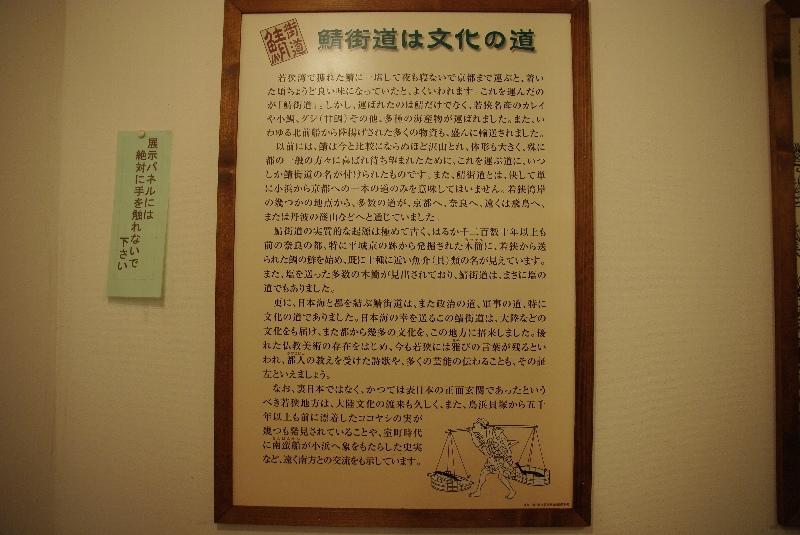 鯖街道
鯖街道は文化の道
若狭湾で獲れた鯖に一塩して夜も寝ないで京都まで運ぶと、着い
た頃ちょうど良い味になっていたと、よくいわれます。これを運んだの
が「鯖街道」。しかし、運ばれたのは鯖だけでなく、若狭名産のカレイ
や小鯛、グジ(甘鯛)その他、多種の海産物が運ばれました。また、い
わゆる北前船から陸揚げされた多くの物資も、盛んに輸送されました。
以前には、鯖は今と比較にならぬほど沢山とれ、体形も大きく、殊に
都の一般の方々に喜ばれ待ち望まれたために、これを運ぶ道に、いつ
しか鯖街道の名が付けられたものです。また、鯖街道とは、決して単
に小浜から京都への一本の道のみを意味してはいません。若狭湾岸
の幾つかの地点から、多数の道が、京都へ、奈良へ、遠くは飛鳥へ、
または丹波の篠山などへと通じていました。
鯖街道の実質的な起源は極めて古く、はるか千二百数十年以上も
前の奈良の都、特に平城京の跡から発掘された木簡に、若狭から送
られた鯛の鮓を始め、既に十種に近い魚介(貝)類の名が見えています。
また、塩を送った多数の木簡が見出されており、鯖街道は、まさに塩の
道でもありました。
更に、日本海と都を結ぶ鯖街道は、また政治の道、軍事の道、特に
文化の道でありました。日本海の幸を送るこの鯖街道は、大陸などの
文化をも届け、また都から幾多の文化を、この地方に招来しました。優
れた仏教美術の存在をはじめ、今も若狭には雅びの言葉が残るとい
われ、都人の教えを受けた詩歌や、多くの芸能の伝わることも、その証
左といえましょう。
なお、裏日本ではなく、かつては表日本の正面玄関であったという
べき若狭地方は、大陸文化の渡来も久しく、また、鳥浜貝塚から五千
年以上も前に漂着したココヤシの実が
幾つも発見されていることや、室町時代
に南蛮船が小浜へ象をもたらした史実
など、遠く南方との交流をも示しています。
展示パネルには
絶対に手を触れないで
下さい